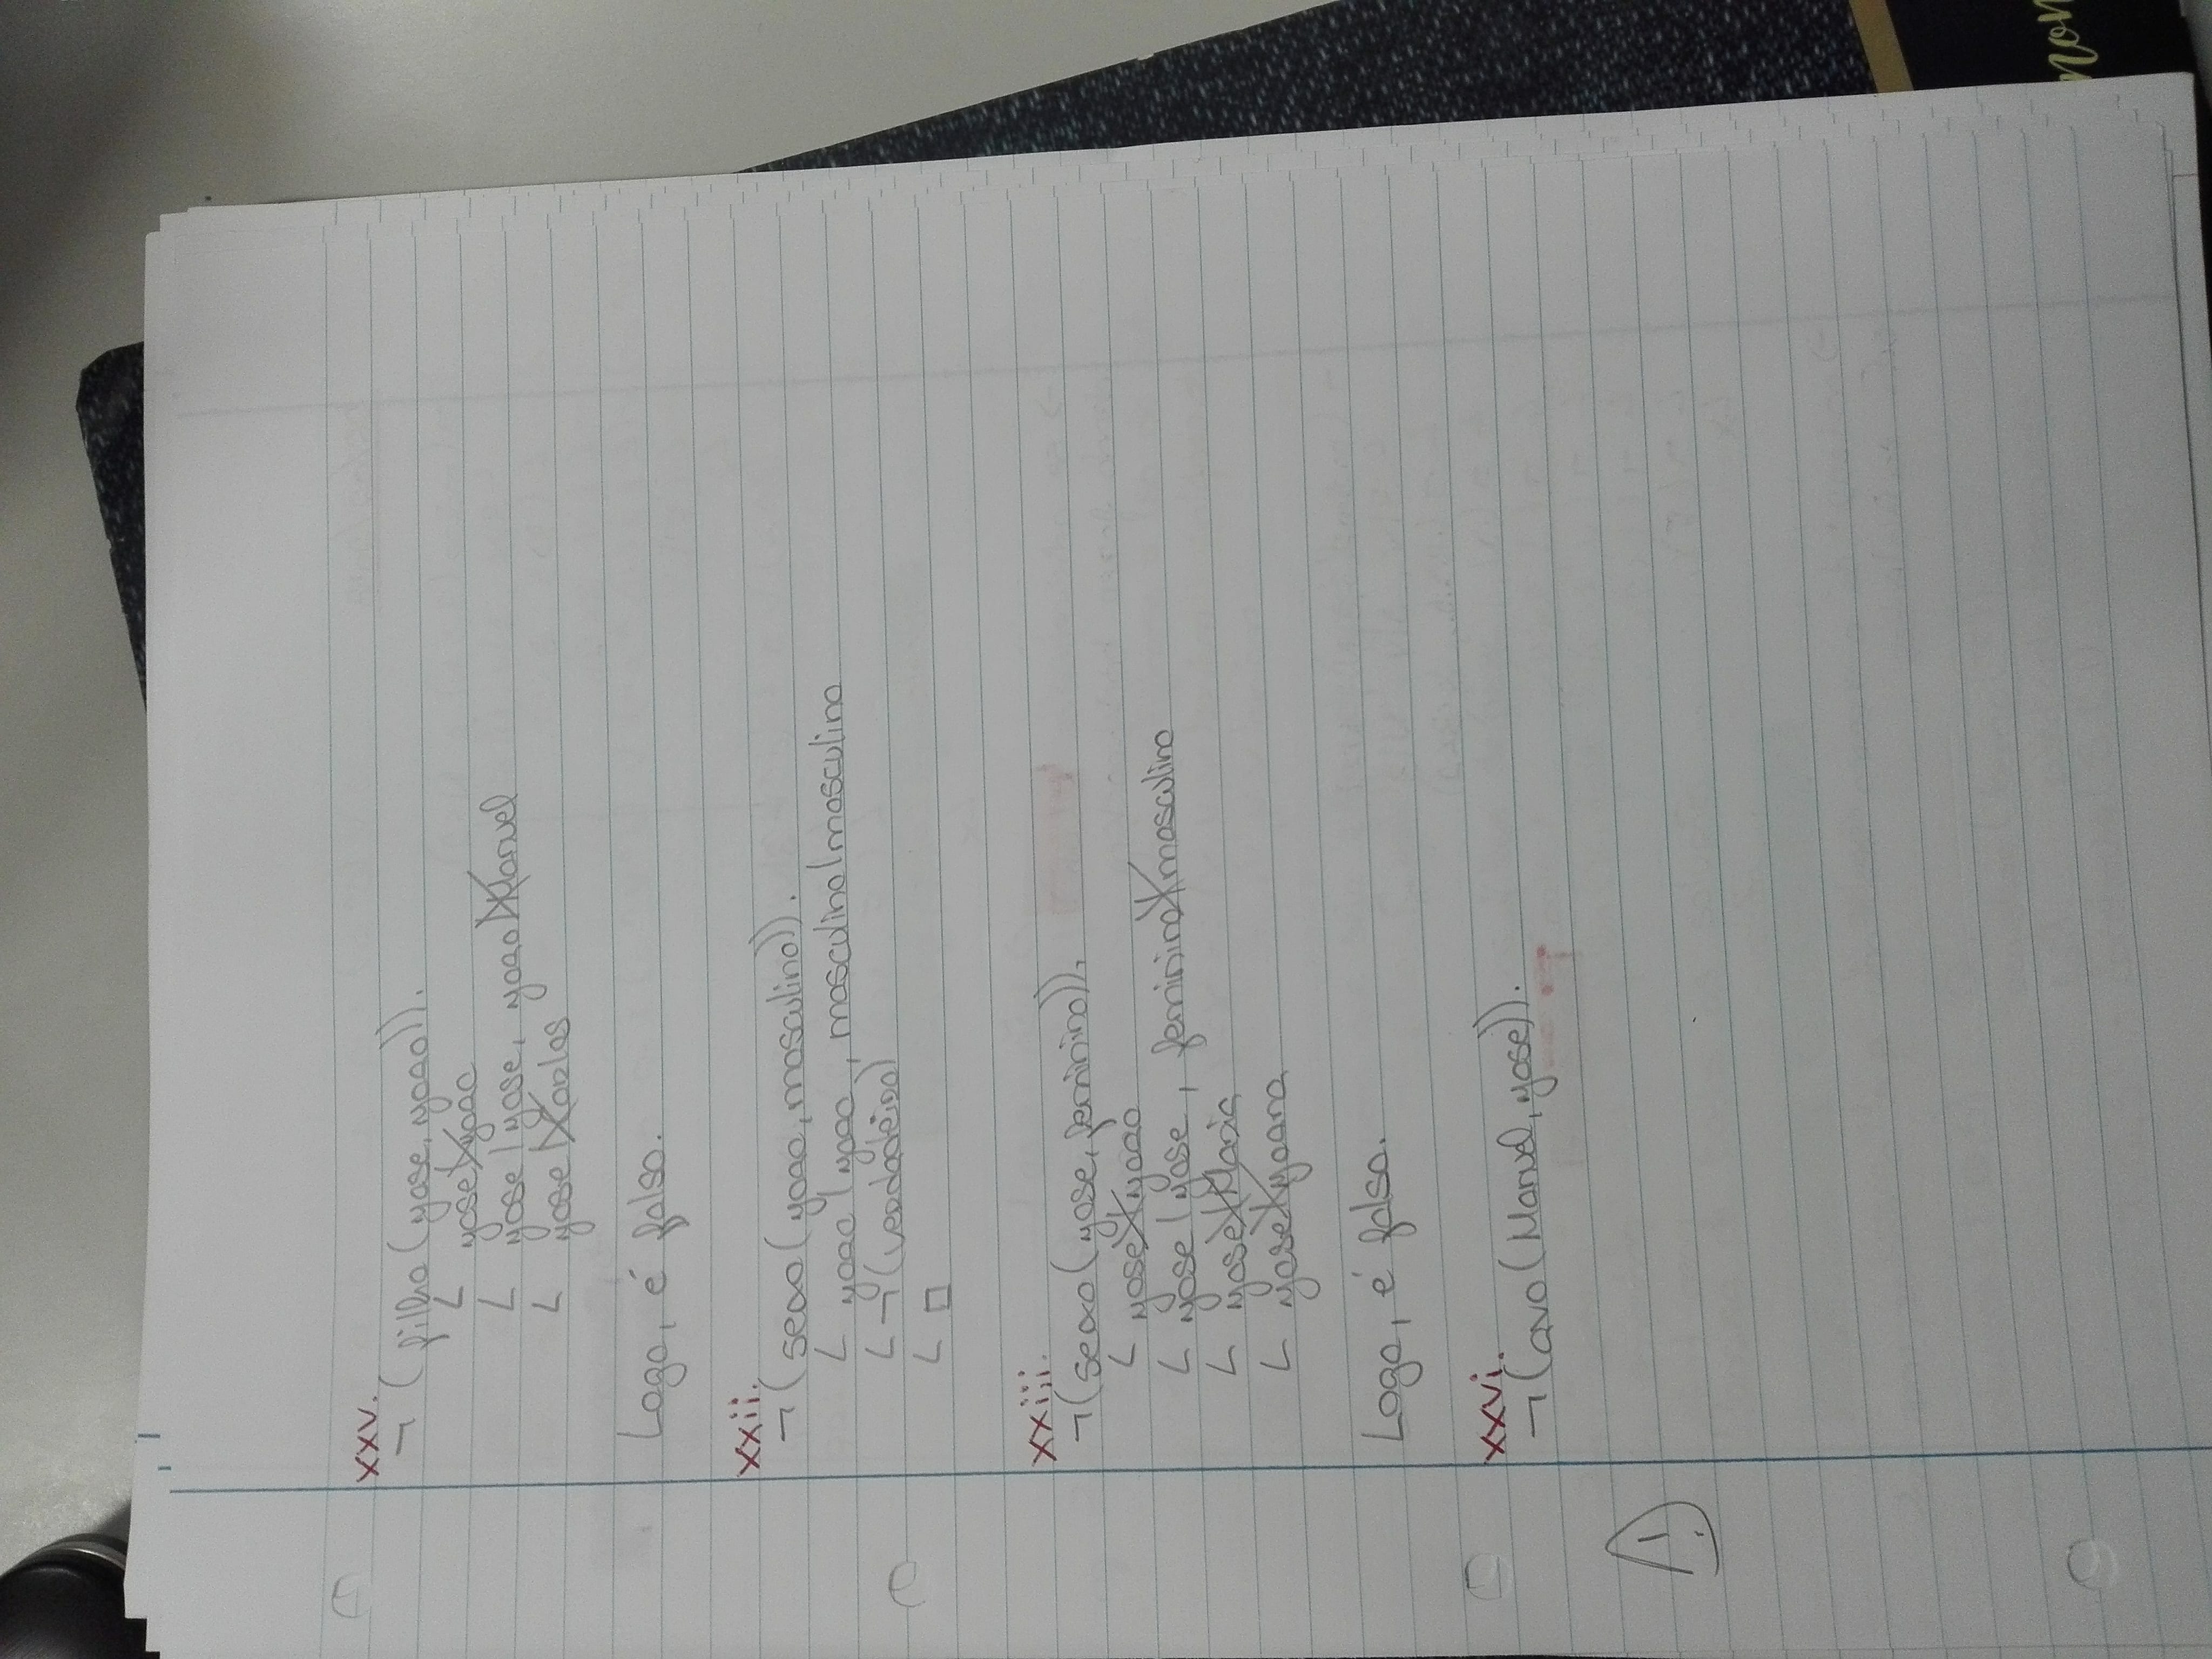 xxv.
¬(filho(jose, joao)).
L jose X joao
L jose | jose, joao X Manuel
L jose X Carlos
Logo, é falso.
xxii.
¬(sexo(joao, masculino)).
L joao | joao, masculino | masculino
L ¬(verdadeiro)
L □
xxiii.
¬(sexo(jose, feminino)),
L jose X joao
L jose | jose, feminino X masculino
L jose X Maria
L jose X joana
Logo, é falso.
xxvi.
¬(avo(Manuel, jose)).
!